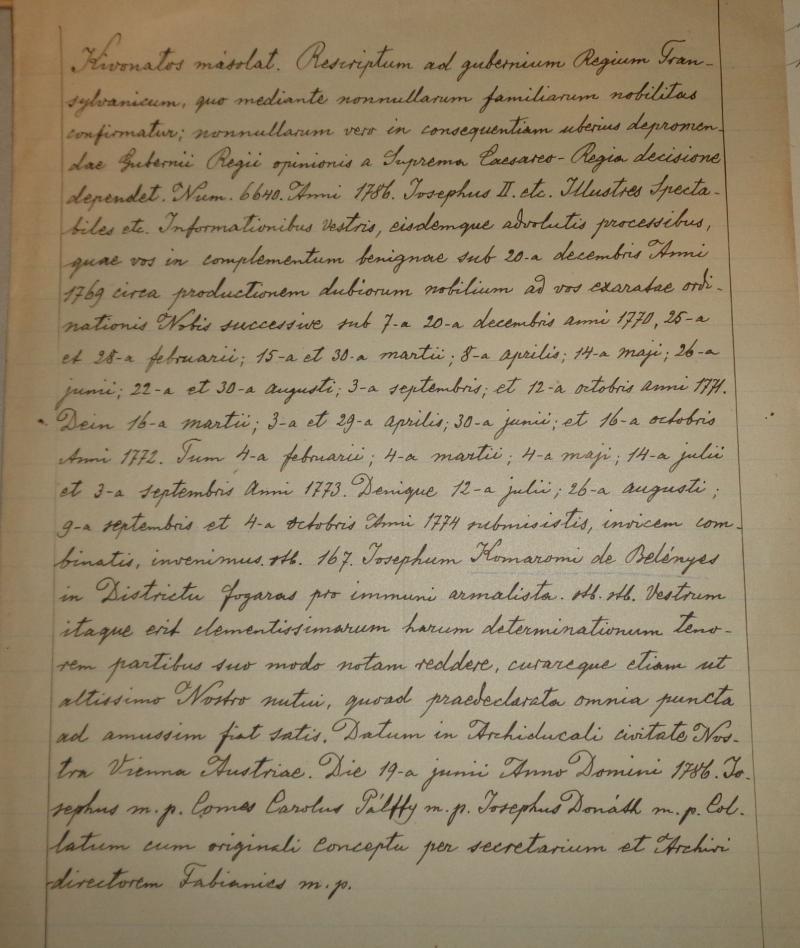 Kivonatos másolat. Rescriptum ad gubernium Regium Tran-
sylvanicum, quo mediante nonnullarum familiarum nobilitas
confirmatur; nonnullarum vero in consequentiam uberius depromen-
dae Gubernii Regii opinionis a Suprema Caesareo-Regia decisione
dependet. Num. 6640. Anni 1786. Iosephus II. etc. Illustres Specta-
biles etc. Informationibus Vestris, eisdemque advolutis processibus,
quae vos in complementum benignae sub 20-a decembris Anni
1769 circa productionem dubiorum nobilium ad vos exaratae ordi-
nationis Nobis successive sub 7-a 20-a decembris anni 1770, 25-a
et 28-a februarii; 15-a et 30-a martii; 8-a aprilis; 14-a maji; 26-a
junii; 22-a et 30-a augusti; 3-a septembris; et 12-a octobris anni 1771.
Dein 16-a martii; 3-a et 29-a aprilis; 30-a junii; et 16-a octobris
Anni 1772. Tum 4-a februarii; 4-a martii; 4-a maji; 14-a julii
et 3-a septembris Anni 1773. Denique 12-a julii; 26-a augusti;
9-a septembris et 4-a octobris Anni 1774 submisistis, invicem com-
binatis, invenimus. stb. 167. Iosephum Komaromi de Belényes
in Districtu fogaras pro immuni armalista. stb. stb. Vestrum
itaque erit clementissimarum harum determinationum teno-
rem partibus suo modo notam reddere, curareque etiam ut
altissimo Nostro nutui, quoad praedeclarata omnia puncta
ad amussim fiat satis. Datum in Archiducali civitate Nos-
tra Vienna Austriae. Die 19-a junii Anno Domini 1786. Io-
sephus m. p. Comes Carolus Pálffy m. p. Iosephus Donáth m. p. Col-
latum cum originali conceptu per secretarium et Archivi
directorem Fabianics m. p.